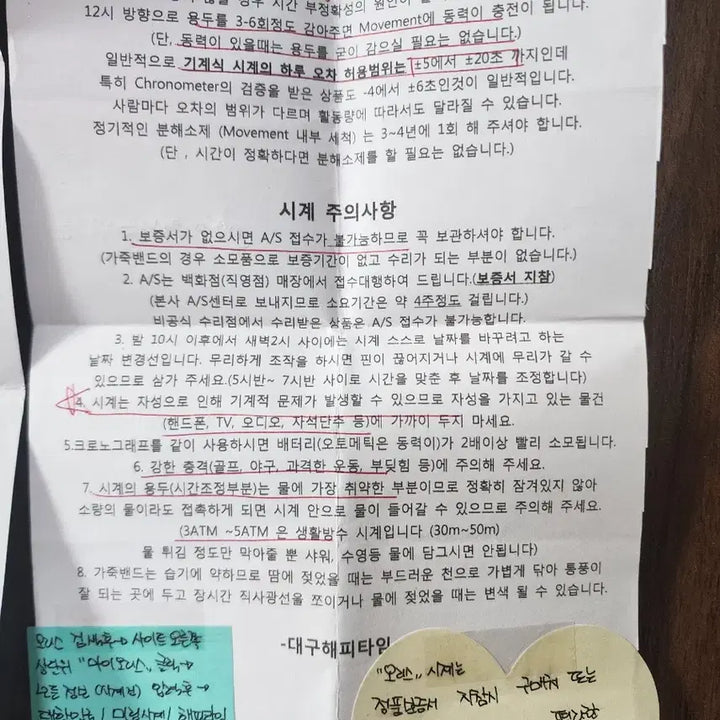 시간 부정확성의 원인이
12시 방향으로 용두를 3-6회정도 감아주면 Movement에 동력이 충전이 됩니다.
(단, 동력이 있을때는 용두를 굳이 감으실 필요는 없습니다.)
일반적으로 기계식 시계의 하루 오차 허용범위는 ±5에서 ±20초 까지인데
특히 Chronometer의 검증을 받은 상품도 -4에서 +6초인것이 일반적입니다.
사람마다 오차의 범위가 다르며 활동량에 따라서도 달라질 수 있습니다.
정기적인 분해소제 (Movement 내부 세척) 는 3~4년에 1회 해 주셔야 합니다.
(단 , 시간이 정확하다면 분해소제를 할 필요는 없습니다.)
시계 주의사항
1. 보증서가 없으시면 A/S 접수가 불가능하므로 꼭 보관하셔야 합니다.
(가죽밴드의 경우 소모품으로 보증기간이 없고 수리가 되는 부분이 없습니다.)
2. A/S는 백화점(직영점) 매장에서 접수대행하여 드립니다.(보증서 지참)
(본사 A/S센터로 보내지므로 소요기간은 약 4주정도 걸립니다.)
비공식 수리점에서 수리받은 상품은 A/S 접수가 불가능합니다.
3. 밤 10시 이후에서 새벽2시 사이에는 시계 스스로 날짜를 바꾸려고 하는
날짜 변경선입니다. 무리하게 조작을 하시면 핀이 끊어지거나 시계에 무리가 갈 수
있으므로 삼가 주세요.(5시반~ 7시반 사이로 시간을 맞춘 후 날짜를 조정합니다)
4. 시계는 자성으로 인해 기계적 문제가 발생할 수 있으므로 자성을 가지고 있는 물건
(핸드폰, TV, 오디오, 자석단추 등)에 가까이 두지 마세요.
5.크로노그래프를 같이 사용하시면 배터리(오토메틱은 동력이)가 2배이상 빨리 소모됩니다.
6. 강한 충격(골프, 야구, 과격한 운동, 부딪힘 등)에 주의해 주세요.
7. 시계의 용두(시간조정부분)는 물에 가장 취약한 부분이므로 정확히 잠겨있지 않아
소량의 물이라도 접촉하게 되면 시계 안으로 물이 들어갈 수 있으므로 주의해 주세요.
(3ATM ~5ATM 은 생활방수 시계입니다 (30m~50m)
물 튀김 정도만 막아줄 뿐 샤워, 수영등 물에 담그시면 안됩니다)
8. 가죽밴드는 습기에 약하므로 땀에 젖었을 때는 부드러운 천으로 가볍게 닦아 통풍이
잘 되는 곳에 두고 장시간 직사광선을 쪼이거나 물에 젖었을 때는 변색 될 수 있습니다.
-대구해피타임
오리스 검색후→ 사이트 오른쪽
상단위 "마이오리스" 클릭→
"오리스" 시계는
정품보증서 지참시 구매처 또는